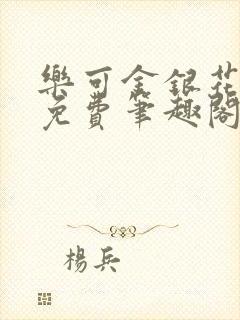 樂可金銀花
免費筆趣閣
楊兵